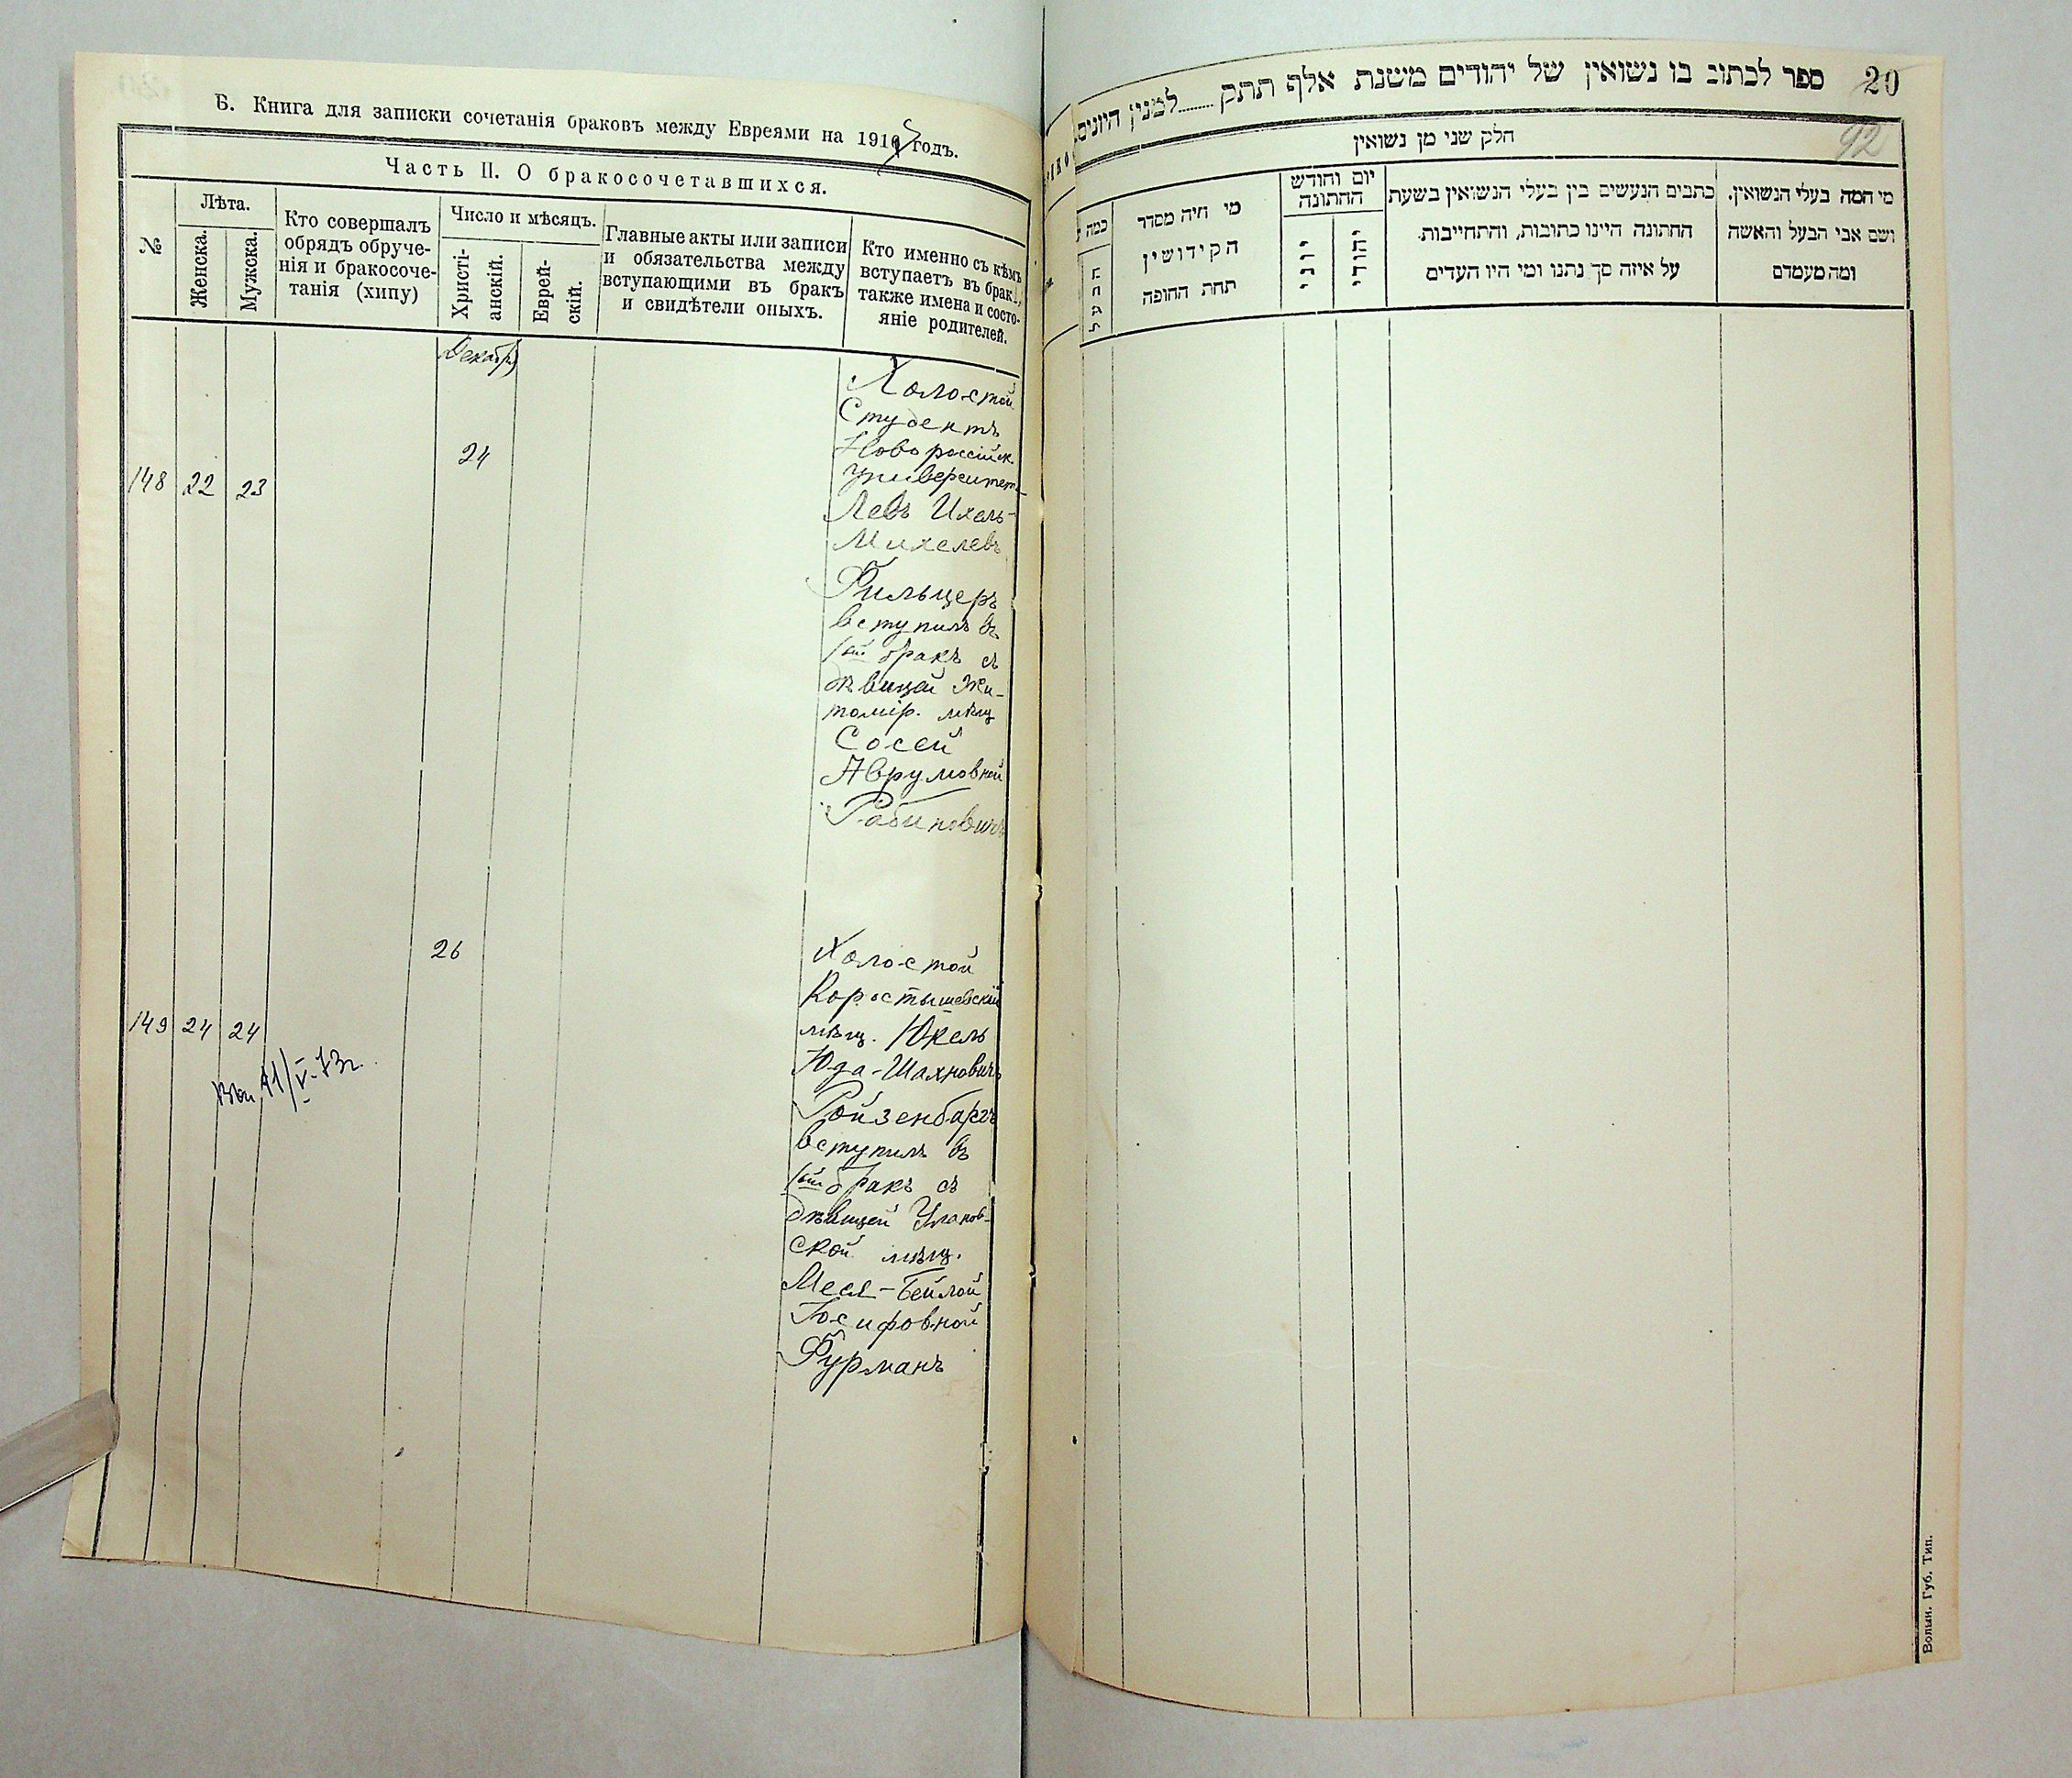 Б. Книга для записки сочетанія браковъ между Евреями на 1915 годъ.
Часть II. О бракосочетавшихся.
№
Лѣта.
Женска.
Мужска.
Кто совершалъ
обрядъ обруче-
нія и бракосоче-
танія (хипу)
Число и мѣсяцъ.
Христі-
анскій.
Еврей-
скій.
Главные акты или записи
и обязательства между
вступающими въ бракъ
и свидѣтели оныхъ.
Кто именно съ кѣмъ
вступаетъ въ бракъ,
также имена и состо-
яніе родителей.
Декабрь
148 22 23
24
Холостой
Студентъ
Новороссійск.
Университет.
Левъ Ихель-
Михелевъ
Фильцеръ
вступилъ въ
1ый бракъ съ
дѣвицей Жи-
томір. мѣщ
Сосей
Аврумовной
Рабиновичъ
149 24 24
26
Холостой
Коростышевскій
мѣщ. Юкель
Юда-Шахновичъ
Ройзенбаргъ
вступилъ въ
1ый бракъ съ
дѣвицей Уланов-
ской мѣщ.
Меся-Бейлой
Іосифовной
Фурманъ
11/V-73г.
ספר לכתוב בו נשואין של יהודים משנת אלף תתק........למנין היונים
20
92
חלק שני מן נשואין
מי המה בעלי הנשואין.
ושם אבי הבעל והאשה
ומה מעמדם
כתבים הנעשים בין בעלי הנשואין בשעת
החתונה היינו כתובות, והתחייבות.
על איזה סך נתנו ומי היו העדים
יום וחודש
החתונה
יהודי
יוני
מי היה מסדר
הקידושין
תחת החופה
כמה
הבעל
Волын. Губ. Тип.